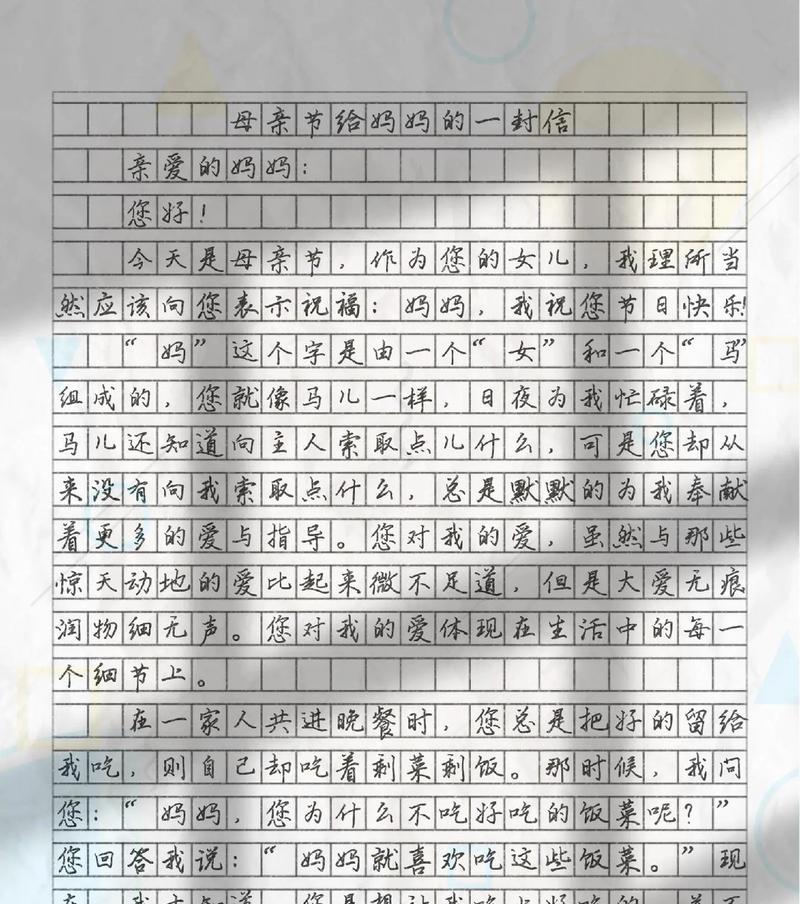 母亲节给妈妈的一封信
亲爱的妈妈：
您好！
今天是母亲节，作为您的女儿，我理所当
然应该向您表示祝福：妈妈，我祝您节日快乐!
“妈”这个字是由一个“女”和一个“马”
组成的，您就像马儿一样，日夜为我忙碌着，
马儿还知道向主人索取点儿什么，可是您却从
来没有向我索取点什么，总是默默的为我奉献
着更多的爱与指导。您对我的爱，虽然与那些
惊天动地的爱比起来微不足道，但是大爱无痕
润物细无声。您对我的爱体现在生活中的每一
个细节上。
在一家人共进晚餐时，您总是把好的留给
我吃，则自己却吃着剩菜剩饭。那时候，我问
您：“妈妈，您为什么不吃好吃的饭菜呢？”
您回答我说：“妈妈就喜欢吃这些饭菜。”现